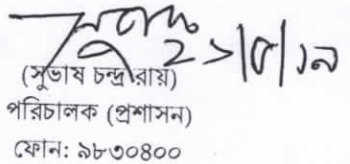 ২১/৫/১৯
(সুভাষ চন্দ্র রায়)
পরিচালক (প্রশাসন)
ফোন: ৯৮৩০৪০০